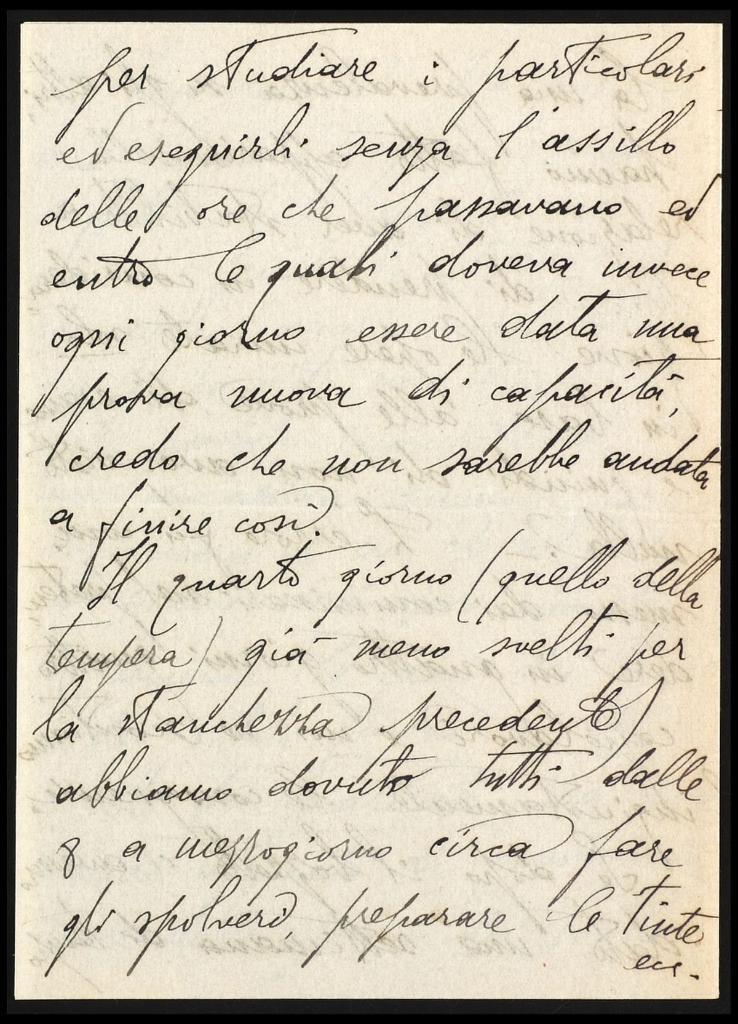 per studiare i particolari
ed eseguirli senza l'assillo
delle ore che passavano ed
entro le quali doveva invece
ogni giorno essere data una
prova nuova di capacità,
credo che non sarebbe andata
a finire così.
Il quarto giorno (quello della
tempera) già meno svelti per
la stanchezza precedente,
abbiamo dovuto tutti dalle
8 a mezzogiorno circa fare
gli spolveri, preparare le tinte
ecc.